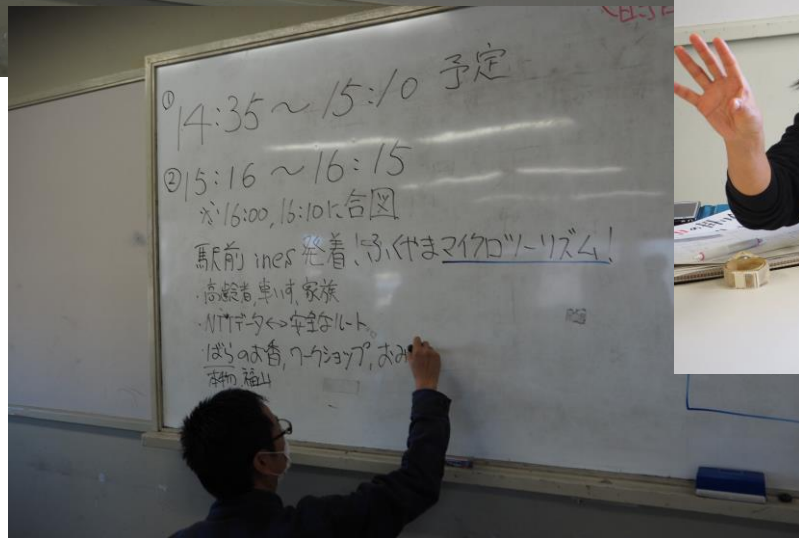 ① 14:35 ～ 15:10 予定
② 15:16 ～ 16:15
※16:00, 16:10に合図
駅前 ines 発着!ふくやまマイクロツーリズム!
・高齢者,車いす,家族
・NTTデータ↔安全なルート
・ばらのお香,ワークショップ,おみ
本物,福山